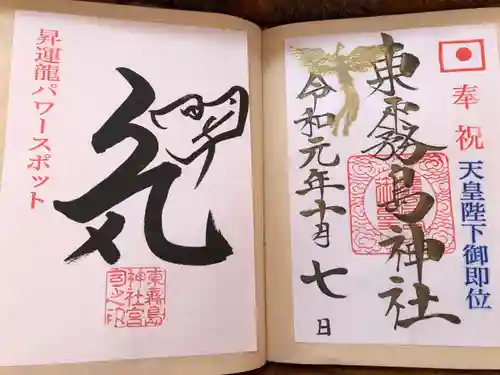 奉祝
天皇陛下御即位
東霧島神社
令和元年十月七日
昇運龍パワースポット
気
東霧島
神社宮
司之印